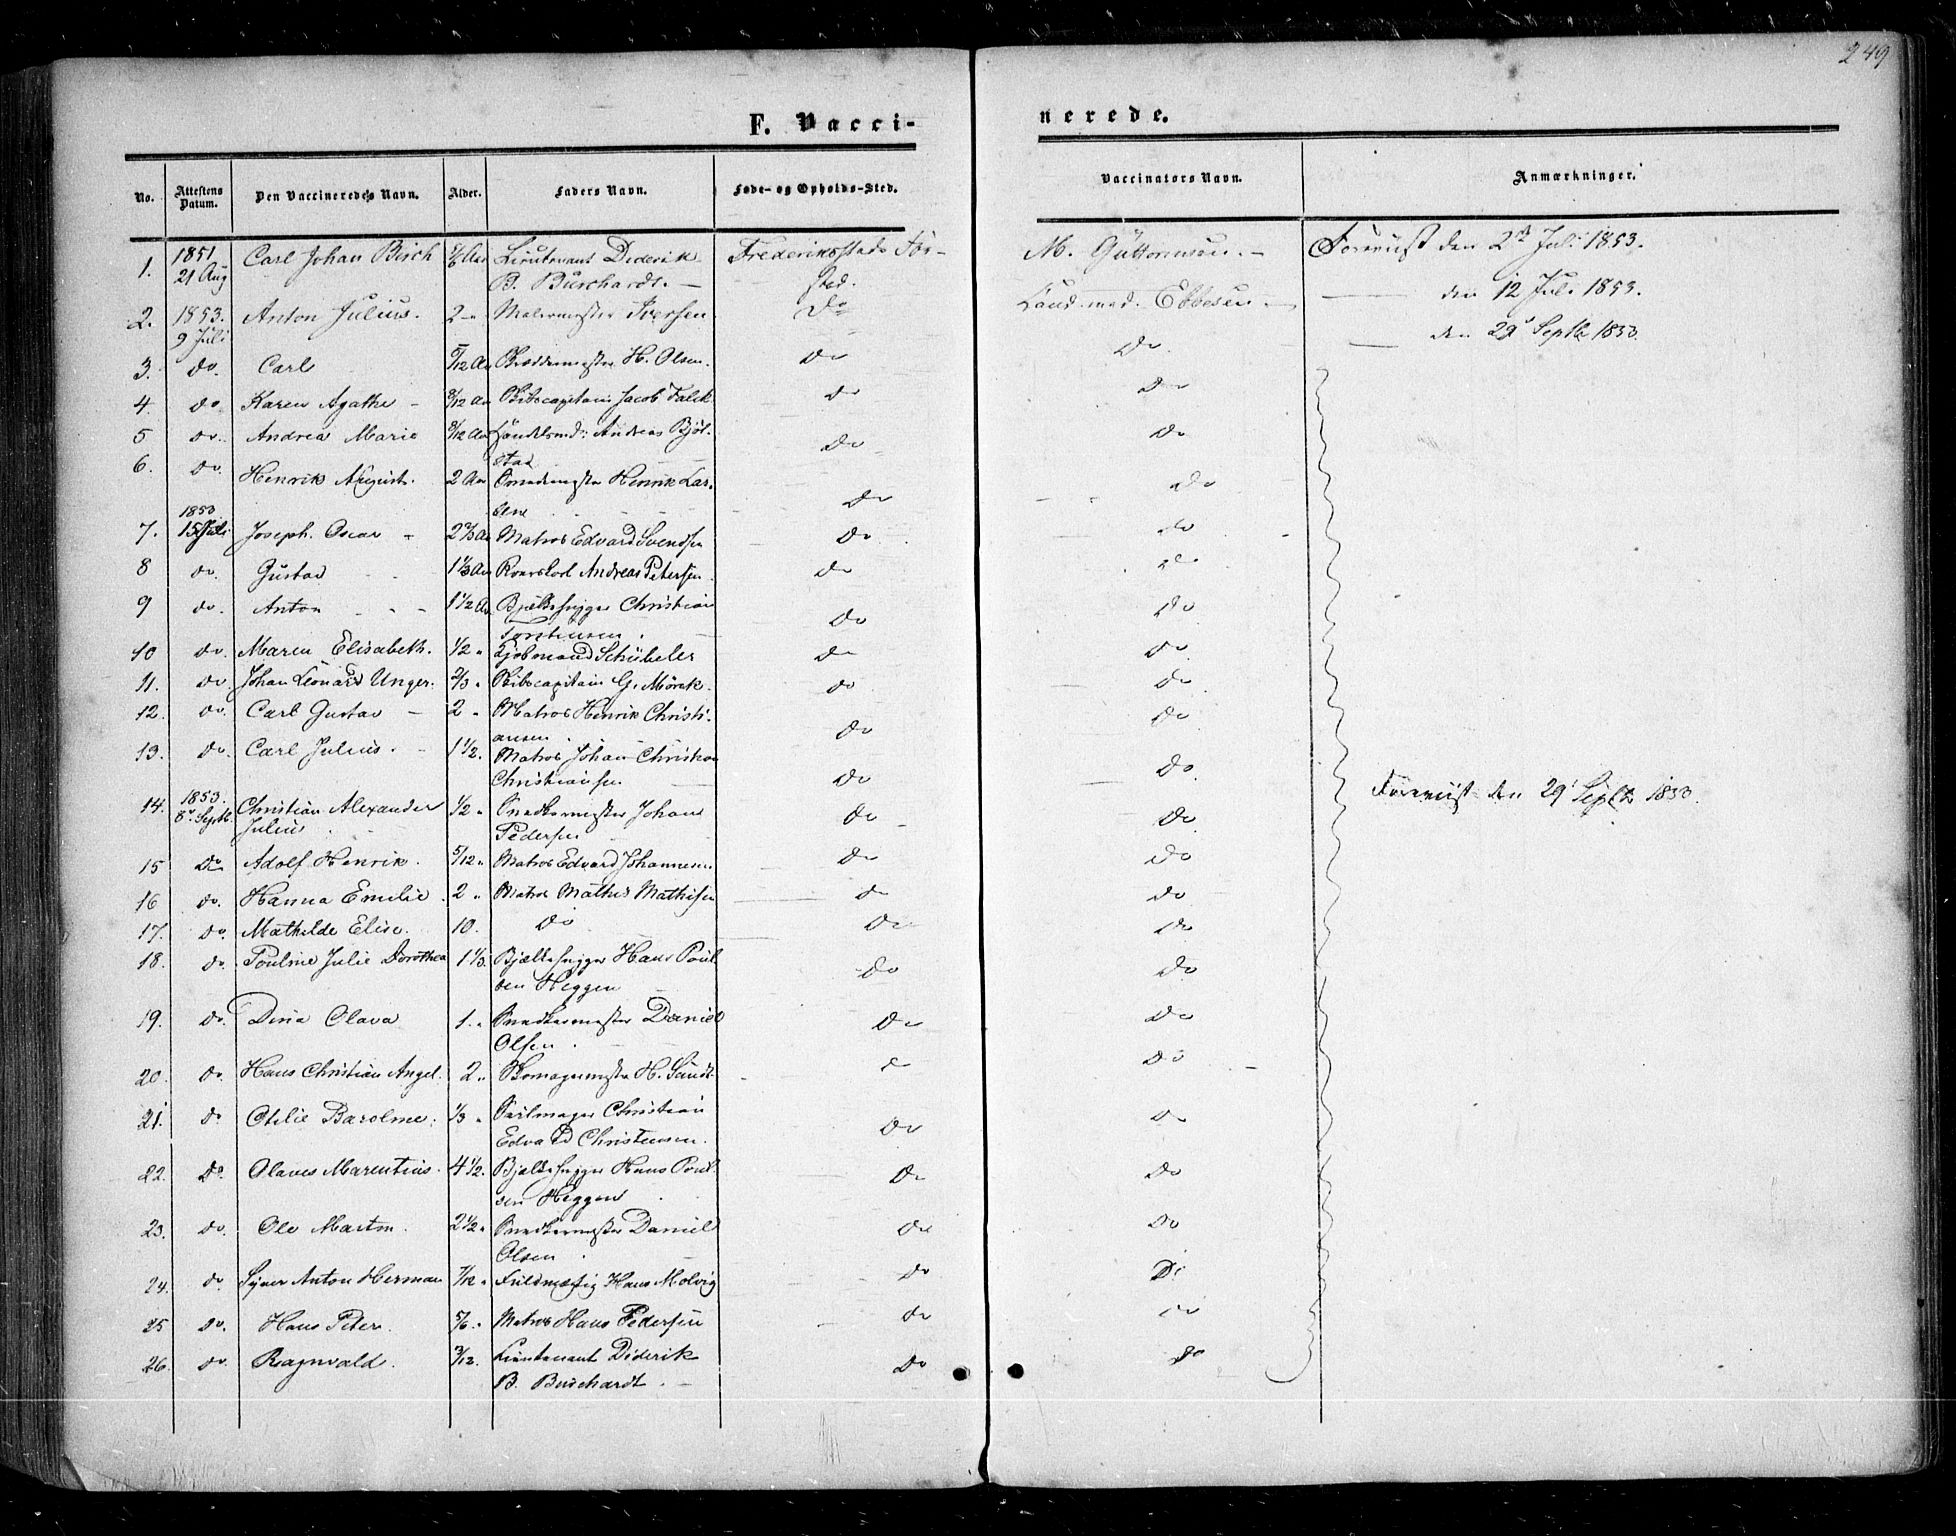 249
F. Vacci-
nerede.
No. Attestens Datum. Den Vaccineredes Navn. Alder. Faders Navn. Føde- og Opholds-Sted. Vaccinators Navn. Anmærkninger.
1. 1851 21 Aug Carl Johan Birch Lieutenant Diderik B. Burchardt. Frederiksstads For- stad. M. Guttormsen. Foreviist den 2d Juli 1853.
2. 1853. 9 Juli Anton Julius. 2 Malermester Iversen Do Ebbesen den 12 Juli 1853.
den 29 Septb 1853.
3. do. Carl /12 Aar H. Olsen. do do.
4. do Karen Agathe 8/12 Aar Jacob Falck do do
5 do. Andrea Marie 8/12 Aar Andreas Bjöl- stad do do
6. do. Henrik August. 2 Aar Henrik Lar- sen do do
7. 1853 15 Juli Joseph. Oscar 2 2/3 Aar Matros Edvard Svendsen do do
8 do. Gustav 1 1/3 Aar Andreas Petersen do do
9 do. Anton 1 1/2 Aar Christian Torstensen. do do
10 do. Maren Elisabeth. 1/2 " Kjöbmand Schübeler do do
11. do Johan Leonard Unger. 2/3 " G. Mörck. do do
12. do. Carl Gustav 2 " Matros Henrik Christi- ansen do do
13. do. Carl Julius. 1 1/2. Matros Johan Christian Christiansen do do.
14. 1853. 8 Septb. Christian Alexander Julius 1/2 " Snedkermester Johan Pedersen do do Foreviist den 29 Septb 1853.
15 do Adolf Henrik. 5/12 " Matros Edvard Johannesen do do
16 do. Hanna Emilie 2 " Matros Mathis Mathisen do do
17. do. Mathilde Elise. 10. do do do
18. do Pouline Julie Dorothea 1 1/3. Hans Poul- sen Heggen do do
19. do. Dina Olava 1. " Snedkermester Daniel Olsen. do do
20. do. Hans Christian Angel. 2 " H. Sundt do do
21. do Otilie Baroline. 1/3 " Seilmager Christian Edvard Christensen. do do
22. Do Olaves Marentius. 4 1/2. Hans Poul- sen Heggen do do
23. do. Ole Martin. 2 1/2 " Snedkermester Daniel Olsen do do
24. do Syver Anton Herman 7/12 " Fuldmægtig Hans Molvig do Do
25 do. Hans Peter. 5/6. " Matros Hans Pedersen do do
26. do Ragnvald. Lieutenant Diderik B. Burchardt. do do